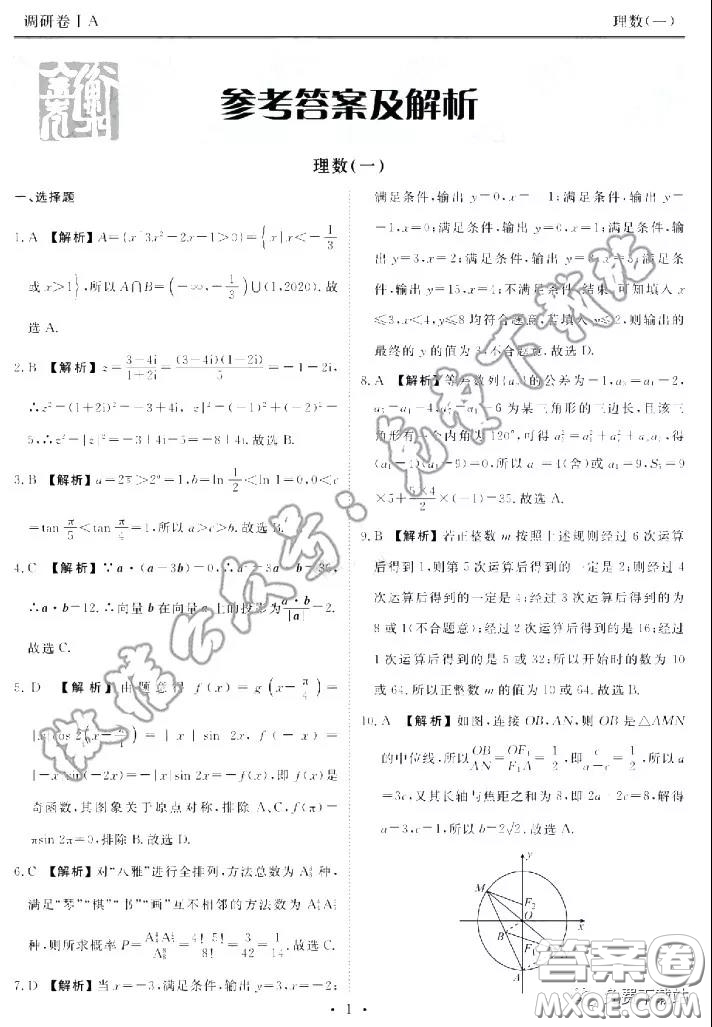 调研卷ⅠA
理数(一)
参考答案及解析
理数(一)
一、选择题
1. A 【解析】A={x|3x²-2x-1>0}={x|x<-1/3
或x>1},所以A∩B=(-∞,-1/3)∪(1,2020).故
选A.
2. B 【解析】z=(3-4i)/(1+2i)=(3-4i)(1-2i)/5=-1-2i,
∴z²=(1+2i)²=-3+4i,|z|²=(-1)²+(-2)²=
5,∴z²-|z|²=-3+4i-5=-8+4i.故选B.
3. B 【解析】a=2^π>2⁰=1,b=ln 1/2<ln 1=0,0<c
=tan π/5<tan π/4=1,所以a>c>b.故选B.
4. C 【解析】∵a·(a-3b)=0,∴a²=3a·b=36,
∴a·b=12.∴向量b在向量a上的投影为a·b/|a|=2.
故选C.
5. D 【解析】由题意得f(x)=g(x-π/4)=
|x|cos 2(x-π/4)=|x|sin 2x,f(-x)=
|-x|sin(-2x)=-|x|sin 2x=-f(x),即f(x)是
奇函数,其图象关于原点对称,排除A、C,f(π)=
πsin 2π=0,排除B.故选D.
6. C 【解析】对“八雅”进行全排列,方法总数为A⁸₈种,
满足“琴”“棋”“书”“画”互不相邻的方法数为A⁴₄A⁴₅
种,则所求概率P=A⁴₄A⁴₅/A⁸₈=4!5!/8!=3/42=1/14.故选C.
7. D 【解析】当x=-3,满足条件,输出y=3,x=-2;
满足条件,输出y=0,x=-1;满足条件,输出y=-
-1,x=0;满足条件,输出y=0,x=1;满足条件,输
出y=3,x=2;满足条件,输出y=8,x=3;满足条
件,输出y=15,x=4;不满足条件,结束.可知填入x
≤3,x<4,y≤8均符合题意,若填入y≤2,则输出的
最终的y的值为3,不合题意.故选D.
8. A 【解析】等差数列{aₙ}的公差为-1,a₃=a₁-2,
a₅=a₁-4,a₇=a₁-6为某三角形的三边长,且该三
角形有一个内角为120°,可得a₃²=a₅²+a₇²+a₅a₇,得
(a₁-4)(a₁-9)=0,所以a₁=4(舍)或a₁=9,S₅=9
×5+5×4/2×(-1)=35.故选A.
9. B 【解析】若正整数m按照上述规则经过6次运算
后得到1,则第5次运算后得到的一定是2;则经过4
次运算后得到的一定是4;经过3次运算后得到的为
8或1(不合题意);经过2次运算后得到的是16;经过
1次运算后得到的是5或32;所以开始时的数为10
或64.所以正整数m的值为10或64.故选B.
10. A 【解析】如图,连接OB,AN,则OB是△AMN
的中位线,所以OB/AN=OF₁/F₁A=1/2,即c/(a-c)=1/2,所以a
=3c,又其长轴与焦距之和为8,即2a+2c=8,解得
a=3,c=1,所以b=2√2.故选A.
y
M
F₂
O
x
B
F₁
A
答案卷
· 1 ·